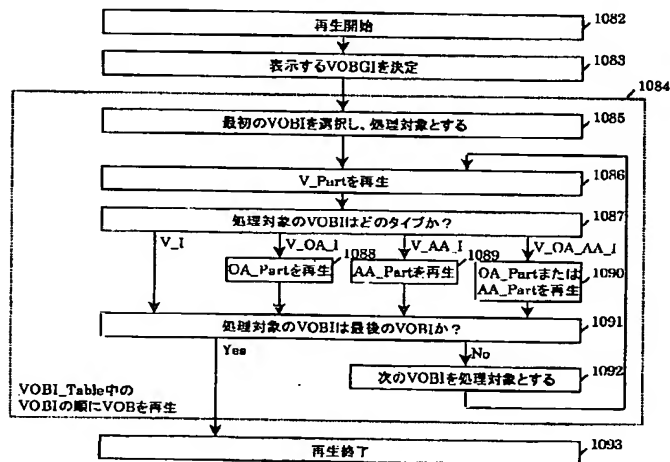 再生開始
1082
表示するVOBGIを決定
1083
1084
最初のVOBIを選択し、処理対象とする
1085
V_Partを再生
1086
処理対象のVOBIはどのタイプか?
1087
V_I
V_OA_I
V_AA_I
V_OA_AA_I
1088
1089
OA_Partを再生
AA_Partを再生
OA_Partまたは
AA_Partを再生
1090
処理対象のVOBIは最後のVOBIか?
1091
Yes
No
次のVOBIを処理対象とする
1092
VOBI_Table中の
VOBIの順にVOBを再生
再生終了
1093